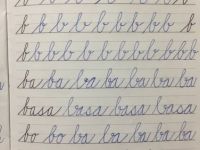 b b b b b b b b b b
b b b b b b b b b b b
ba ba ba ba ba ba ba
basa basa basa basa
bo bo ba ba ba ba ba